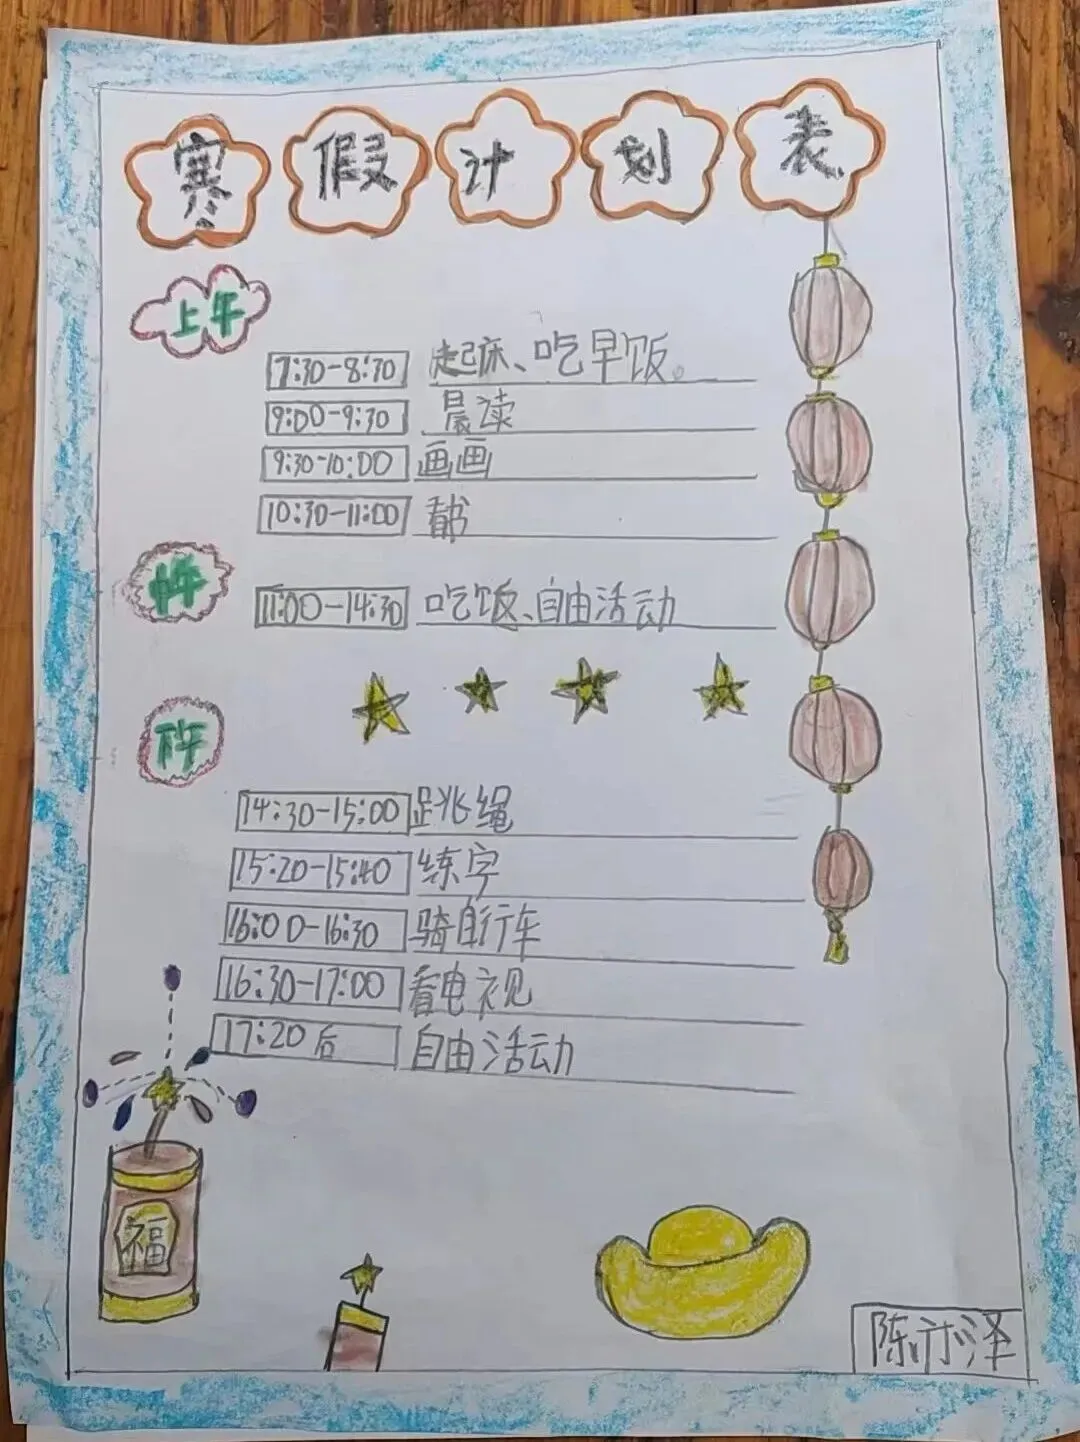 寒假计划表
上午
7:30-8:30 起床、吃早饭。
9:00-9:30 晨读
9:30-10:00 画画
10:30-11:00 看书
中午
11:00-14:30 吃饭、自由活动
下午
14:30-15:00 跳绳
15:20-15:40 练字
16:00-16:30 骑自行车
16:30-17:00 看电视
17:20后 自由活动
福
陈沐泽